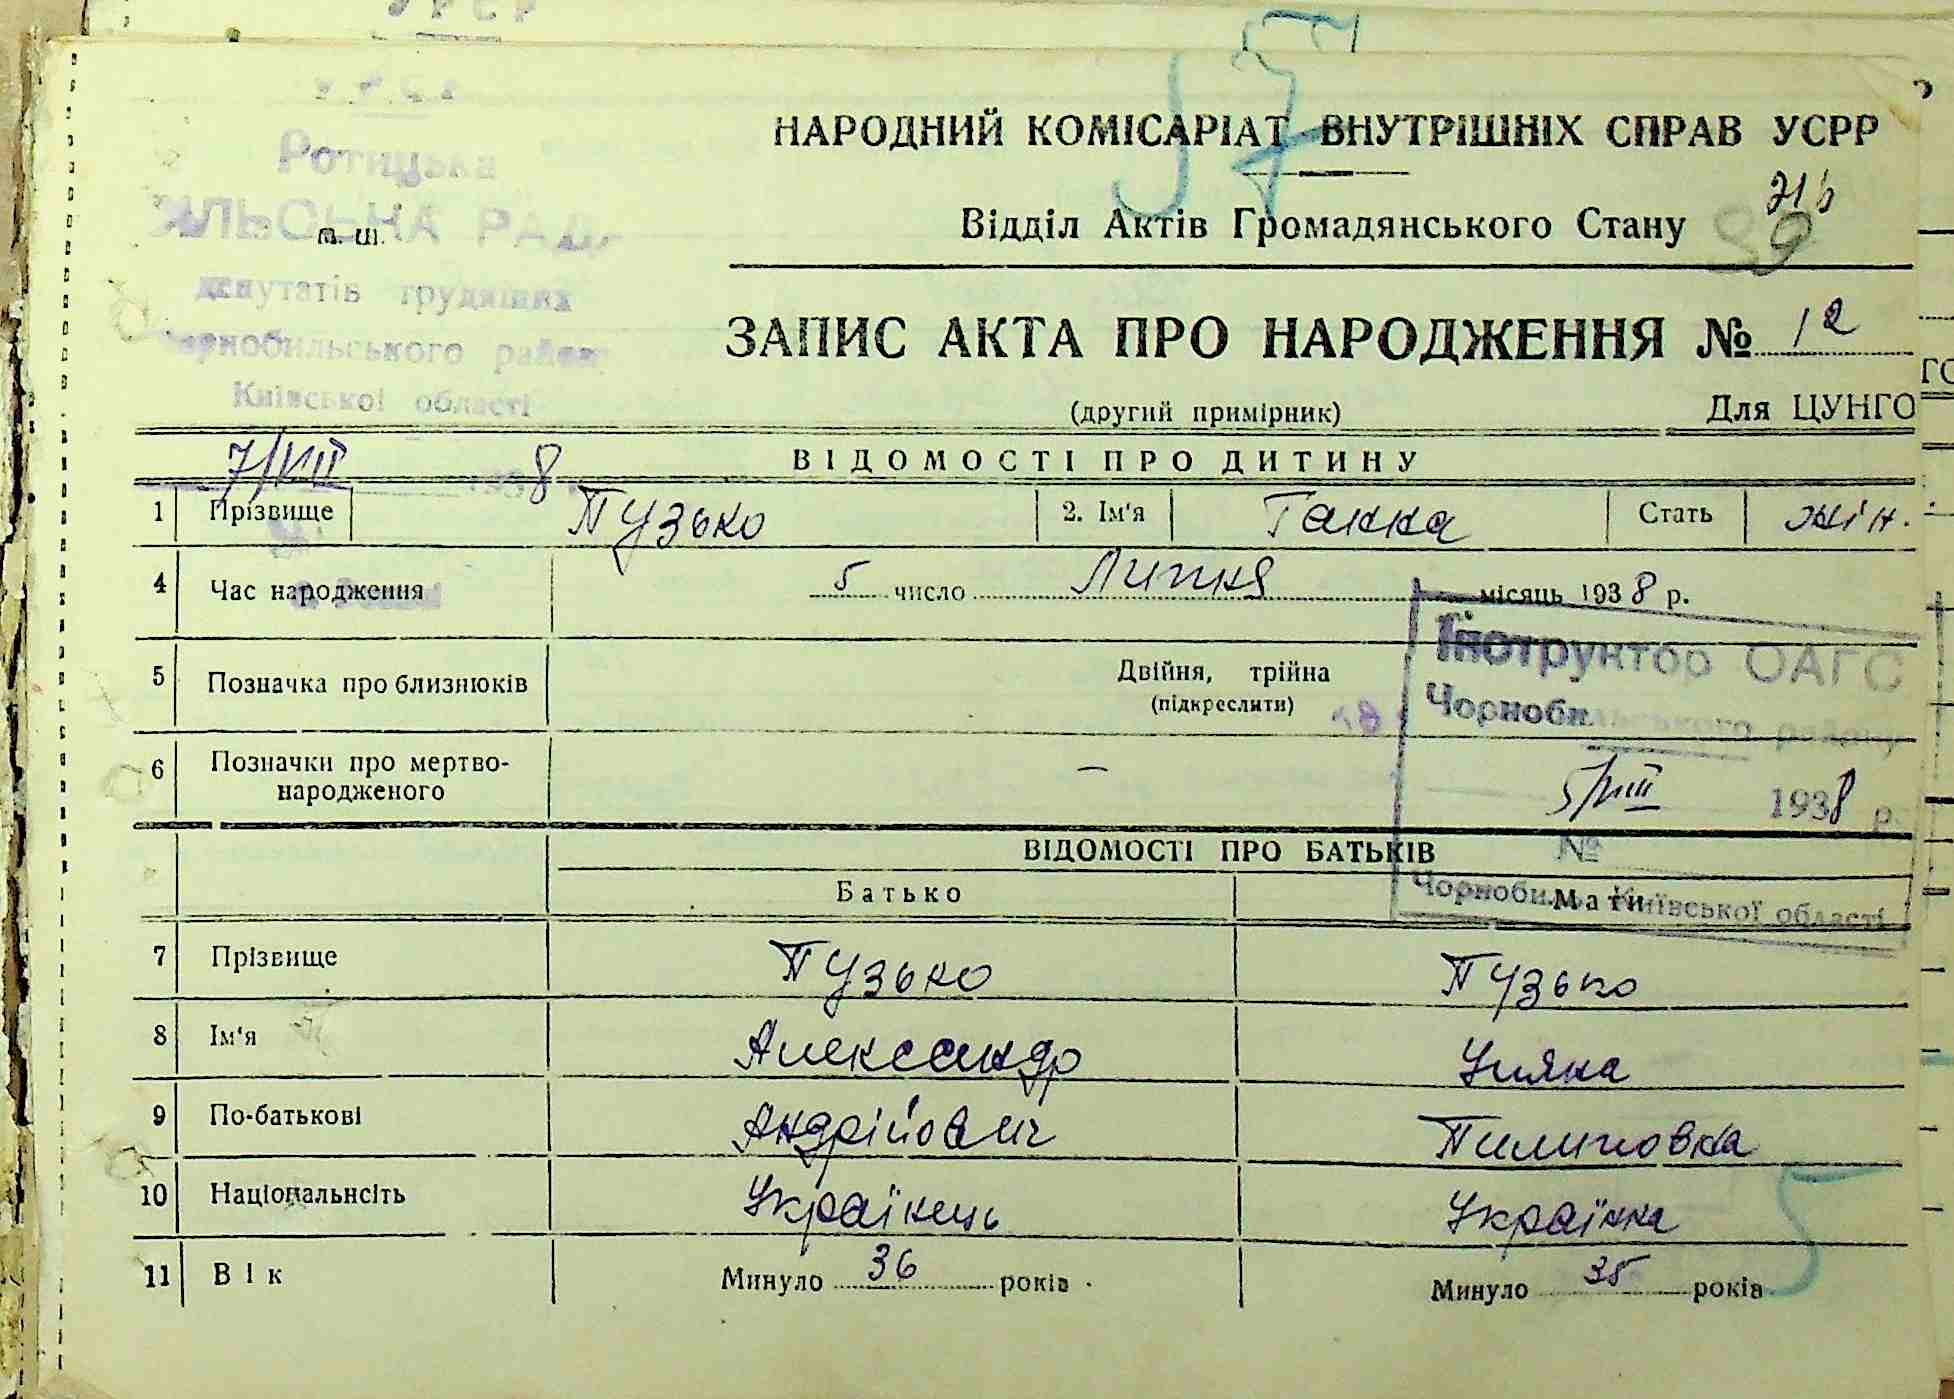 УРСР
УРСР
Ротицька
СІЛЬСЬКА РАДА
м. ш.
депутатів трудящих
Чорнобильського району
Київської області
7/VIII 1938
НАРОДНИЙ КОМІСАРІАТ ВНУТРІШНІХ СПРАВ УСРР
Відділ Актів Громадянського Стану
ЗАПИС АКТА ПРО НАРОДЖЕННЯ № 12
(другий примірник) Для ЦУНГО
ВІДОМОСТІ ПРО ДИТИНУ
1 Прізвище Пузько 2. Ім'я Ганна Стать жін.
4 Час народження 5 число Липня місяць 1938 р.
5 Позначка про близнюків Двійня, трійна
(підкреслити)
6 Позначки про мертво-
народженого —
Інструктор ОАГС
Чорнобильського району
5/VIII 1938 р.
№
Чорнобиль Київської області
ВІДОМОСТІ ПРО БАТЬКІВ
Батько Мати
7 Прізвище Пузько Пузько
8 Ім'я Александр Уляна
9 По-батькові Андрійович Пилиповна
10 Національнсіть Українець Українка
11 Вік Минуло 36 років Минуло 35 років